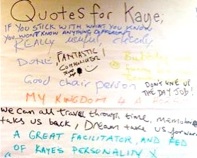 Quotes for Kaye,
IF YOU STICK WITH WHAT YOU KNOW
YOU WON'T KNOW ANYTHING DIFFERENT
REALLY useful
DONE FANTASTIC
COMMUNICATOR
Good chair person
DON'T GIVE UP
THE DAY JOB!
MY KINGDOM 4 A
we can all travel through time, memories
takes us back, Dream take us forward
A GREAT FACILITATOR, AND
OF KAYES PERSONALITY X